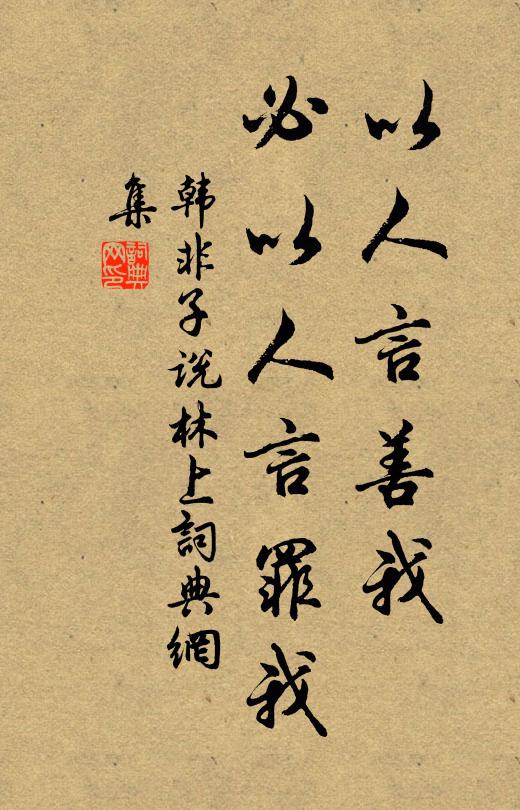 以人言善我
必以人言罪我
韩非子说林上詞典網
集
詞典网印